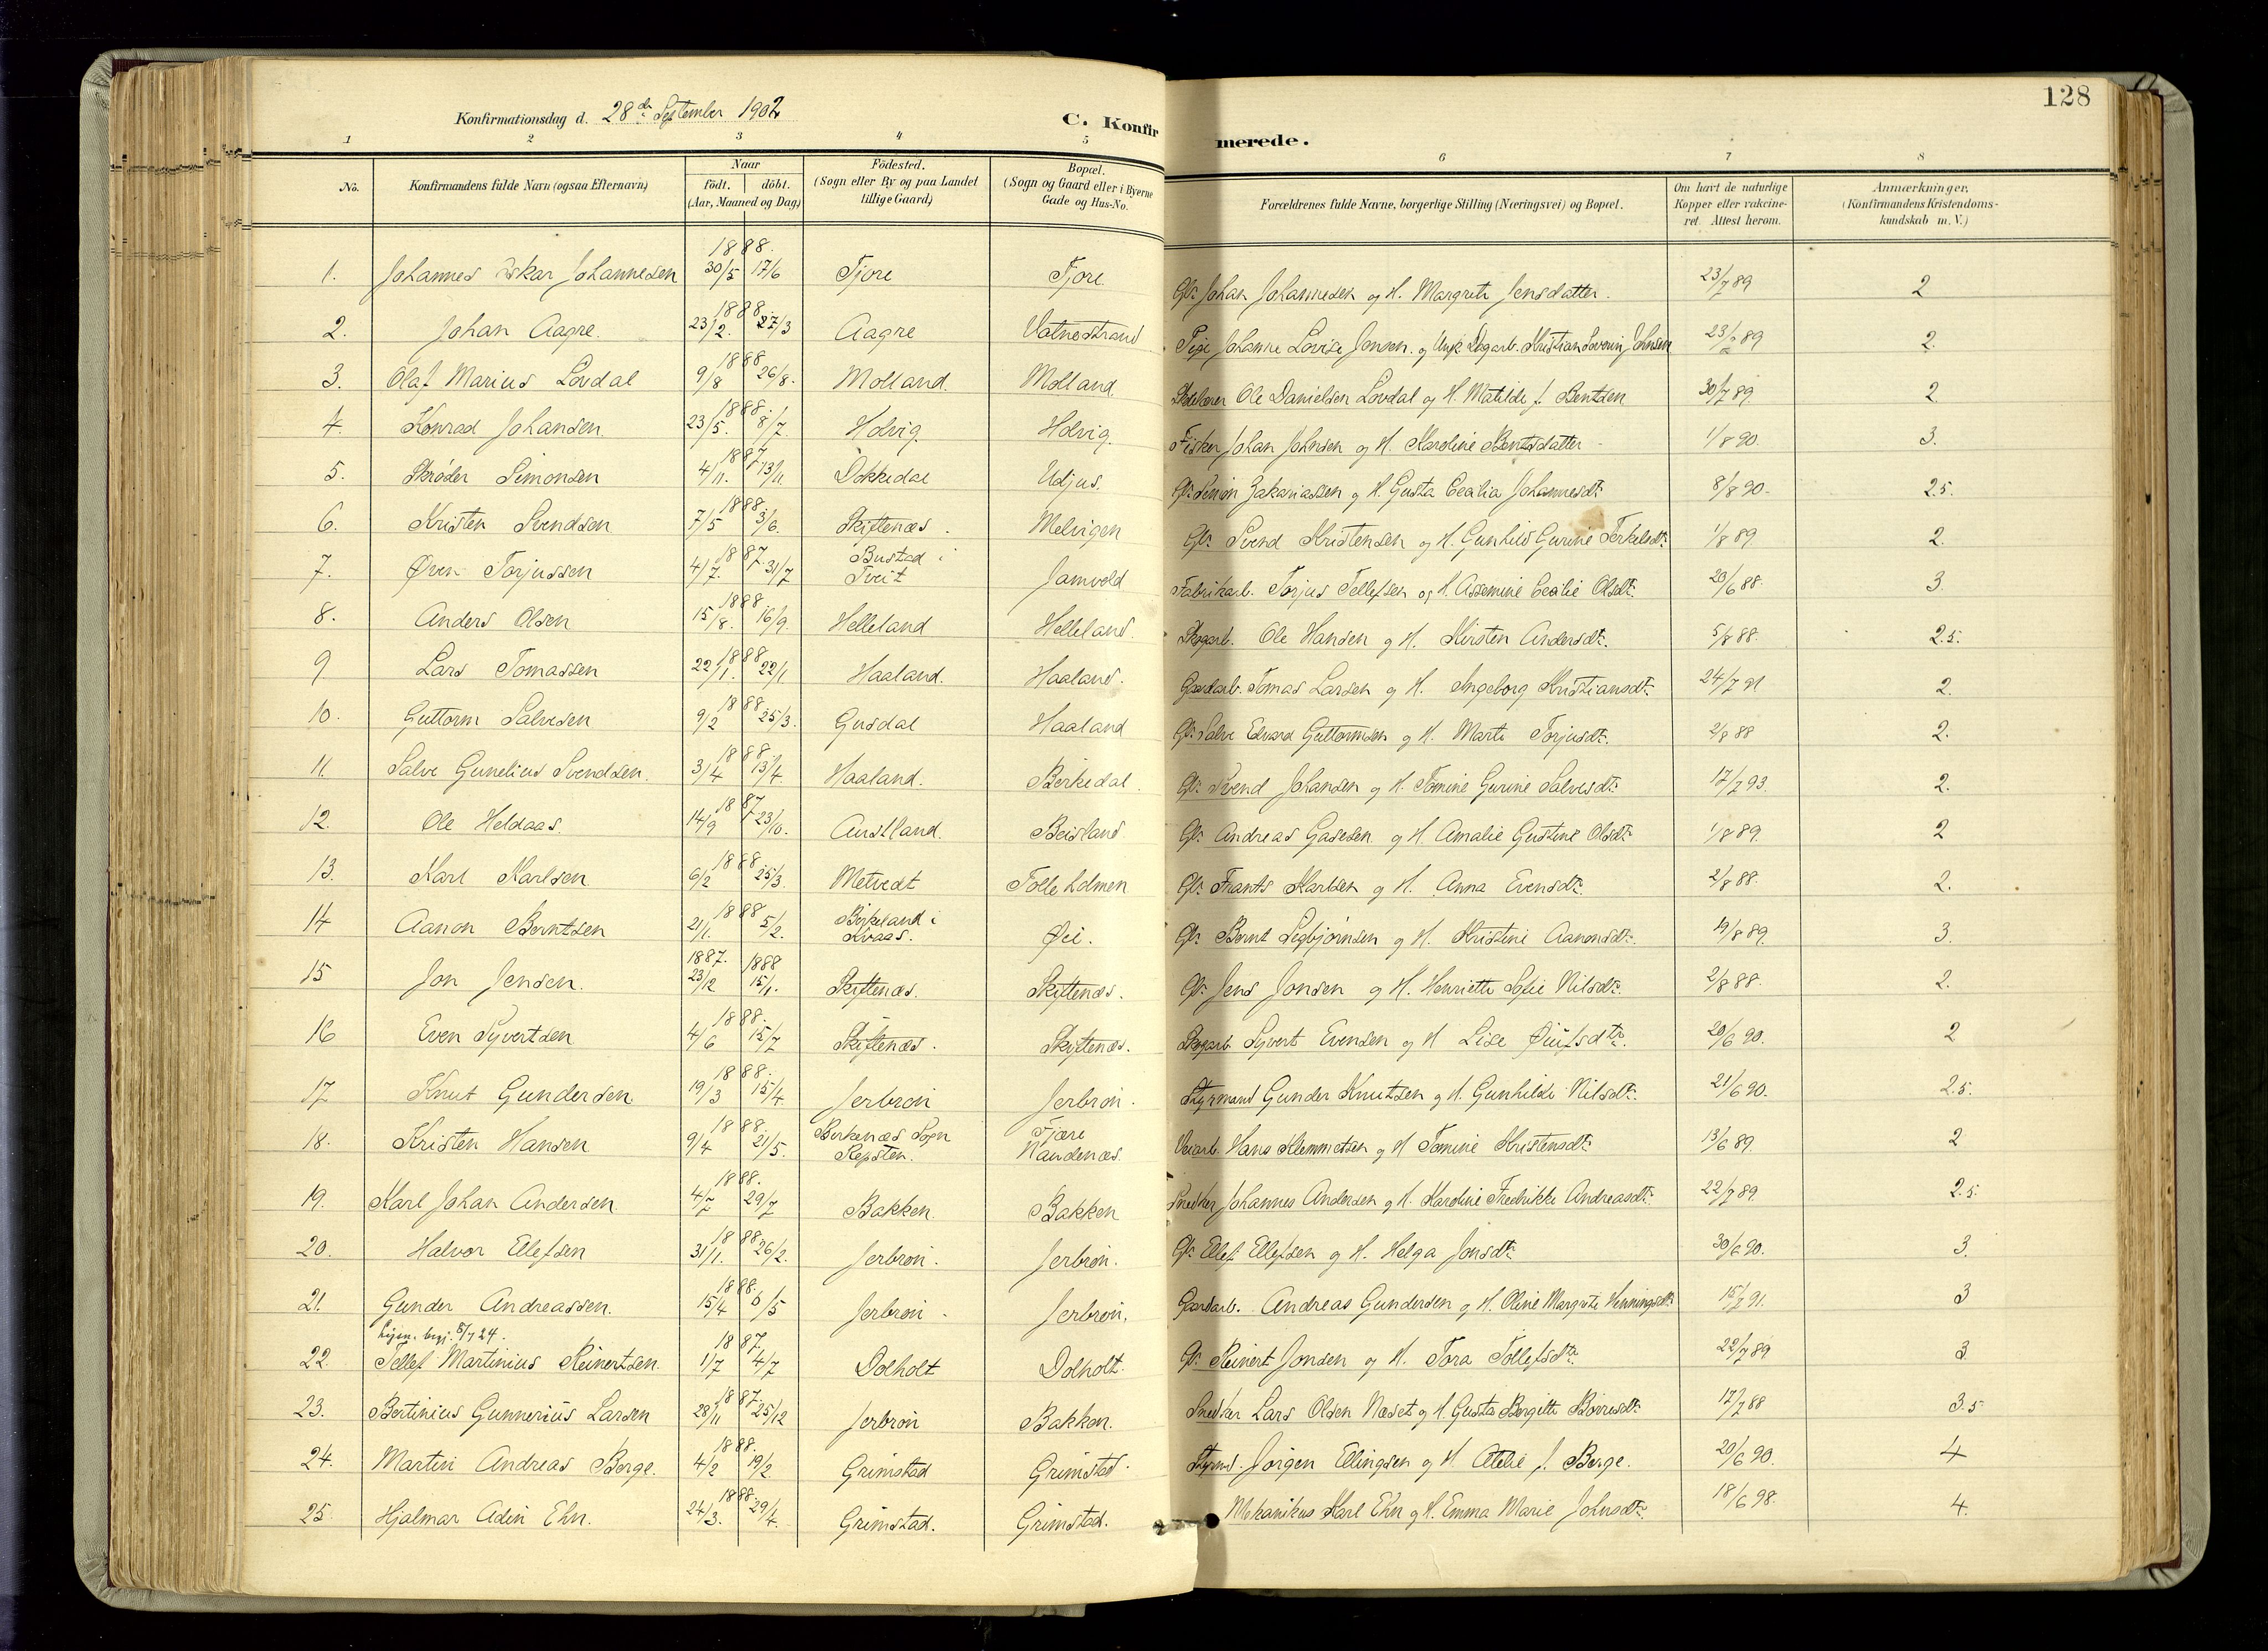 128
Konfirmationsdag d. 28de September 1902
C. Konfirmerede.
1 2 3 4 5 6 7 8
No. Konfirmandens fulde Navn (ogsaa Efternavn) Naar födt. döbt. (Aar, Maaned og Dag) Födested. (Sogn eller By og paa Landet tillige Gaard) Bopæl. (Sogn og Gaard eller i Byerne Gade og Hus-No. Forældrenes fulde Navne, borgerlige Stilling (Næringsvei) og Bopæl. Om havt de naturlige Kopper eller vakcineret. Attest herom. Anmærkninger. (Konfirmandens Kristendomskundskab m. V.)
1. Johannes Oskar Johannesen 1888. 30/5 17/6 Fjore Fjore. Gbr. Johan Johannesen og H. Margrete Jensdatter. 23/7 89 2
2. Johan Aagre. 1888. 23/2. 27/3 Aagre Vatnestrand Pige Johanne Lovise Jensen og Ungk. Dagarb. Kristian Severin Johnsen 23/7 89 2.
3. Olaf Marius Lovdal 1888 9/8 26/8. Molland. Molland. Ole Danielsen Lovdal og H. Matilde f. Bentsen 30/7 89. 2
4. Konrad Johansen. 1888. 23/5. 8/7. Holvig. Holvig. Fisker Johan Johnsen og H. Karoline Bentsdatter 1/8 90. 3.
5. Skrøder Simonsen 1887 4/11. 13/11 Dokkedal Udjus. Gbr. Simon Zakariassen og H. Gusta Cecilia Johannesdtr. 8/8 90. 2.5.
6. Kristen Svendsen 1888. 7/5 3/6. Skiftenæs. Melvigen Gbr. Svend Kristensen og H. Gunhild Gurine Terkelsdtr. 1/8 89. 2.
7. Øven Torjussen 1887. 4/7. 31/7 Bustad i Tveit Jomvold Fabrikarb. Torjus Tellefsen og H. Assemine Cecilie Olsdtr. 20/6 88. 3
8. Anders Olsen 1888 15/8. 16/9. Helleland Helleland. Skogarb. Ole Hansen og H. Kirsten Andersdtr. 5/8 88. 2.5.
9 Lars Tomassen 1888 22/1. 22/1 Haaland. Haaland. Gaardarb. Tomas Larsen og H. Ingeborg Kristiansdtr. 24/7 91 2.
10. Guttorm Salvesen 1888 9/2 25/3. Gusdal Haaland Gbr. Salve Edvard Guttormsen og H. Marte Torjusdtr. 2/8 88 2.
11. Salve Gunelius Svendsen. 1888. 3/4 13/4. Haaland. Birkedal. Gbr. Svend Johansen og H. Tomine Gurine Salvesdtr. 17/7 93. 2.
12. Ole Heldaas. 1887 14/9 23/10. Austland. Beisland Gbr. Andreas Gasesen og H. Amalie Gustine Olsdtr. 1/8 89. 2
13. Karl Karlsen. 1888 6/2 25/3. Metvedt Tolleholmen Gbr. Frants Karlsen og H. Anna Evensdtr. 2/8 88. 2.
14 Aanon Berntsen 1888 21/1. 5/2. Birkeland i Kvaas. Øei. Gbr. Bernt Sigbjørnsen og H. Kristine Aanonsdtr. 19/8 89. 3.
15 Jon Jensen. 1887. 23/12 1888 15/1. Skiftenæs. Skiftenæs. Gbr. Jens Jonsen og H. Henriette Sofie Nilsdtr. 2/8 88. 2.
16 Even Syvertsen 1888. 4/6 15/7 Skiftenæs. Skiftenæs. Skogarb. Syvert Evensen og H. Lise Øiufsdtr. 20/6 90. 2
17 Knut Gundersen. 1888. 19/3 15/4 Jerbron Jerbron. Styrmand Gunder Knutsen og H. Gunhilde Nilsdtr. 21/6 90. 2.5.
18. Kristen Hansen. 1888. 9/4 21/5. Birkenæs Sogn Repsten. Fjære Naudenæs. Veiarb. Hans Klemmetsen og H Tomine Kristensdtr. 13/6 89. 2
19. Karl Johan Andersen. 1888. 4/7 29/7 Bakken. Bakken Snedker Johannes Andersen og H. Karoline Fredrikke Andreasdtr. 22/7 89. 2.5.
20. Halvor Ellefsen 1888 31/1. 26/2. Jerbron. Jerbron. Gbr. Ellef Ellefsen og H. Helga Jonsdtr. 30/6 90. 3.
21. Gunder Andreassen. 1888. 15/4 6/5 Jerbron. Jerbron. Gaardarb. Andreas Gundersen og H. Oline Margrete Henningsdtr. 15/7 91. 3
22. 5/7 24. Tellef Martinius Reinertsen. 1887. 1/7 4/7 Dolholt Dolholt. Gbr. Reinert Jonsen og H. Tora Tollefsdtr. 22/7 89 3.
23. Bertinius Gunnerius Larsen 1887. 28/11 25/12 Jerbron Bakken. Snedker Lars Olsen Næset og H. Gusta Bergitte Børresdtr. 17/7 88 3.5
24. Martin Andreas Berge. 1888. 4/2 19/2. Grimstad Grimstad. Styrmd. Jørgen Ellingsen og H. Atelie f. Berge. 20/6 90. 4
25. Hjalmar Adin Ehn. 1888 24/3. 29/4. Grimstad. Grimstad. Mekanikus Karl Ehn og H. Emma Marie Johnsdtr. 18/6 98. 4.